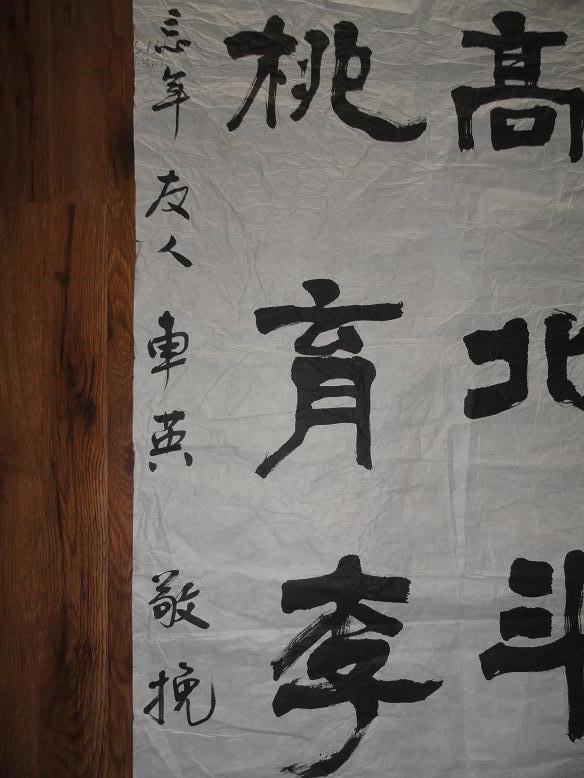 高北斗
桃育李
忘年友人車英敬挽